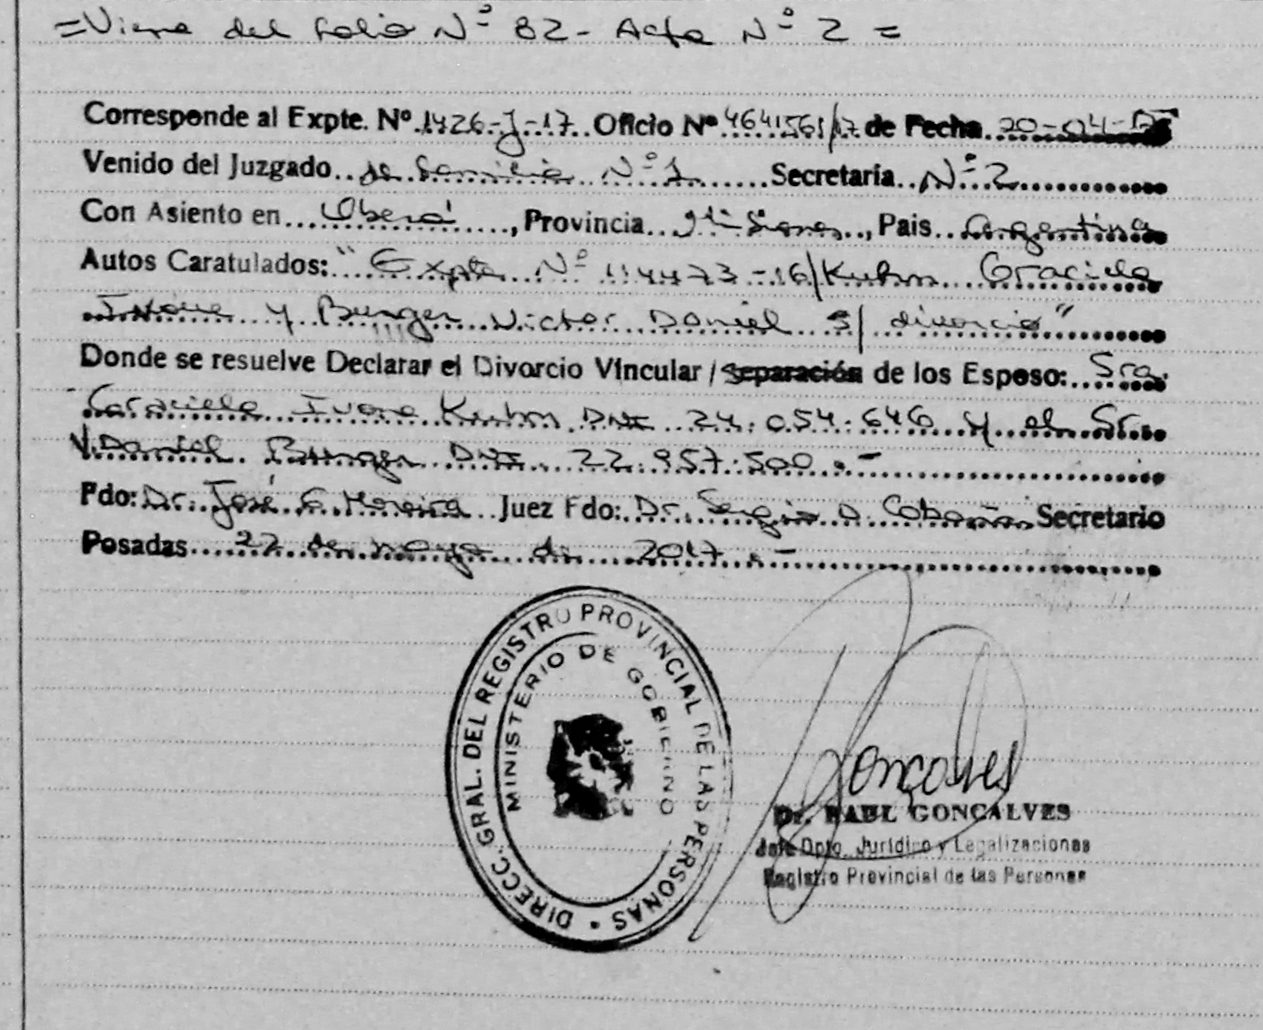 =Viene del folio Nº 82 - Acta Nº 2 =
Corresponde al Expte. Nº 1426-J-17 Oficio Nº 4641561/17 de Fecha 20-04-17
Venido del Juzgado de Familia Nº 1 Secretaria Nº 2
Con Asiento en Oberá, Provincia Misiones, Pais Argentina
Autos Caratulados: "Expte Nº 114473-16/Kuhn Graciela
Ivone y Bunger Victor Daniel S/ divorcio"
Donde se resuelve Declarar el Divorcio Vincular / Separación de los Esposo: Sra.
Graciela Ivone Kuhn DNI 24.054.646 y el Sr.
V. Daniel Bunger DNI 22.957.500.-
Fdo: Dr. José G. Moreira Juez Fdo: Dr. Sergio D. Secretario
Posadas 22 de mayo de 2017.-
DIRECC. GRAL. DEL REGISTRO PROVINCIAL DE LAS PERSONAS
MINISTERIO DE GOBIERNO
Goncalves
Dr. RAUL GONCALVES
Jefe Dpto. Jurídico y Legalizaciones
Registro Provincial de las Personas